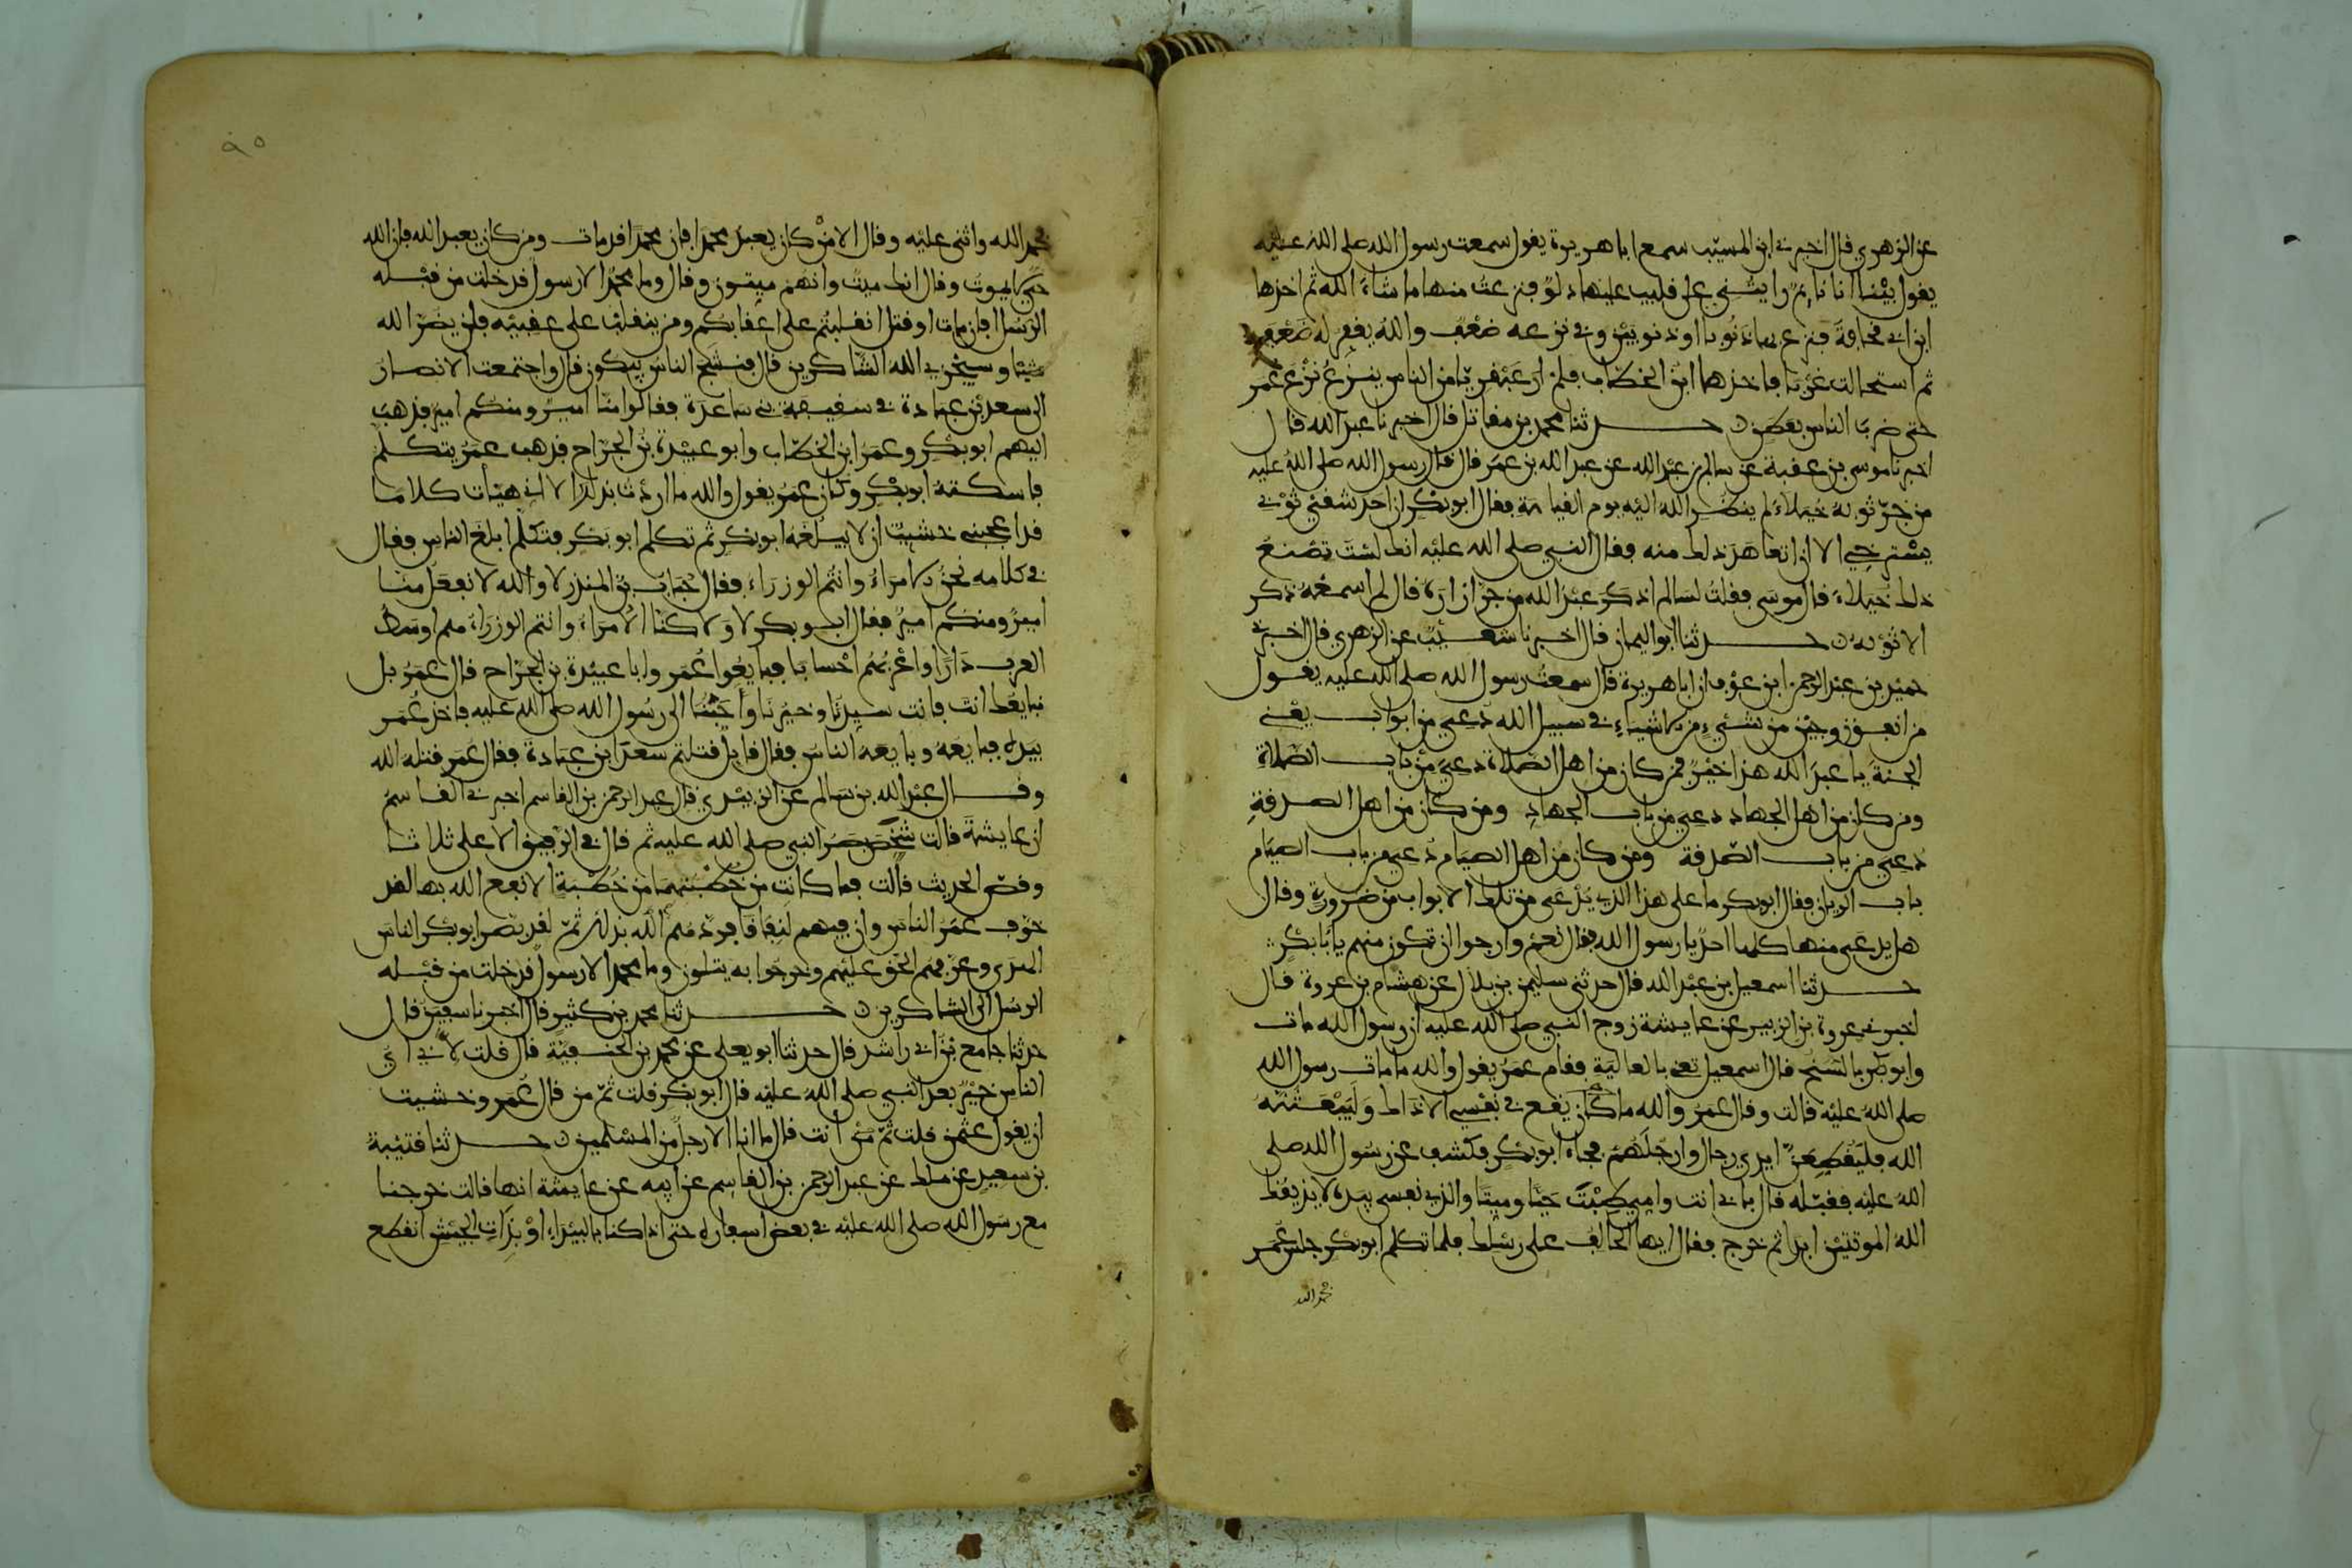 عن الزهري قال اخبرني ابن المسيب سمع ابا هريرة يقول سمعت رسول الله صلى الله عليه
يقول بينا انا نايم رايتني على قليب عليها دلو فنزعت منها ما شاء الله ثم اخذها
ابن ابي قحافة فنزع بها ذنوبا او ذنوبين وفي نزعه ضعف والله يغفر له ضعفه
ثم استحالت غربا فاخذها ابن الخطاب فلم ار عبقريا من الناس ينزع نزع عمر
حتى ضرب الناس بعطن حدثنا محمد بن مقاتل قال اخبرنا عبد الله قال
اخبرنا موسى بن عقبة عن سالم بن عبد الله عن عبد الله بن عمر قال قال رسول الله صلى الله عليه
من جر ثوبه خيلاء لم ينظر الله اليه يوم القيامة فقال ابو بكر ان احد شقي ثوبي
يسترخي الا ان اتعاهد ذلك منه فقال النبي صلى الله عليه انك لست تصنع
ذلك خيلاء قال موسى فقلت لسالم اذكر عبد الله من جر ازاره قال لم اسمعه ذكر
الا ثوبه حدثنا ابو اليمان قال اخبرنا شعيب عن الزهري قال اخبرني
حميد بن عبد الرحمن ابن عوف ان ابا هريرة قال سمعت رسول الله صلى الله عليه يقول
من انفق زوجين من شيء من الاشياء في سبيل الله دعي من ابواب يعني
الجنة يا عبد الله هذا خير فمن كان من اهل الصلاة دعي من باب الصلاة
ومن كان من اهل الجهاد دعي من باب الجهاد ومن كان من اهل الصدقة
دعي من باب الصدقة ومن كان من اهل الصيام دعي من باب الصيام
باب الريان فقال ابو بكر ما على هذا الذي يدعى من تلك الابواب من ضرورة وقال
هل يدعى منها كلها احد يا رسول الله فقال نعم وارجوا ان تكون منهم يابا بكر
حدثنا اسمعيل ابن عبد الله قال حدثني سليمن بن بلال عن هشام بن عروة قال
اخبرني عروة بن الزبير عن عايشة زوج النبي صلى الله عليه ان رسول الله مات
وابو بكر بالسنح قال اسمعيل تعني بالعالية فقام عمر يقول والله ما مات رسول الله
صلى الله عليه قالت وقال عمر والله ما كان يقع في نفسي الا ذاك وليبعثنه
الله فليقطعن ايدي رجال وارجلهم فجاء ابو بكر فكشف عن رسول الله صلى
الله عليه فقبله قال بابي انت وامي طبت حيا وميتا والذي نفسي بيده لا يذيقك
الله الموتتين ابدا ثم خرج فقال ايها الحالف على رسلك فلما تكلم ابو بكر جلس عمر
فحمد الله
٩٥
فحمد الله واثنى عليه وقال الا من كان يعبد محمدا فان محمدا قد مات ومن كان يعبد الله فان الله
حي لا يموت وقال انك ميت وانهم ميتون وقال وما محمد الا رسول قد خلت من قبله
الرسل افان مات او قتل انقلبتم على اعقابكم ومن ينقلب على عقبيه فلن يضر الله
شيئا وسيجزي الله الشاكرين قال فنشج الناس يبكون قال واجتمعت الانصار
الى سعد بن عبادة في سقيفة بني ساعدة فقالوا منا امير ومنكم امير فذهب
اليهم ابو بكر وعمر ابن الخطاب وابو عبيدة بن الجراح فذهب عمر يتكلم
فاسكته ابو بكر وكان عمر يقول والله ما اردت بذلك الا اني هيات كلاما
قد اعجبني خشيت ان لا يبلغه ابو بكر ثم تكلم ابو بكر فتكلم ابلغ الناس فقال
في كلامه نحن الامراء وانتم الوزراء فقال حباب بن المنذر لا والله لا نفعل منا
امير ومنكم امير فقال ابو بكر لا ولاكنا الامراء وانتم الوزراء هم اوسط
العرب دارا واعربهم احسابا فبايعوا عمر وابا عبيدة بن الجراح قال عمر بل
نبايعك انت فانت سيدنا وخيرنا واحبنا الى رسول الله صلى الله عليه فاخذ عمر
بيده فبايعه وبايعه الناس فقال قايل قتلتم سعد ابن عبادة فقال عمر قتله الله
وقال عبد الله بن سالم عن الزبيدي قال عبد الرحمن بن القاسم اخبرني القاسم
ان عايشة قالت شخص بصر النبي صلى الله عليه ثم قال في الرفيق الاعلى ثلاثا
وقص الحديث قالت فما كانت من خطبتهما من خطبة الا نفع الله بها لقد
خوف عمر الناس وان فيهم لنفاقا فردهم الله بذلك ثم لقد بصر ابو بكر الناس
الهدى وعرفهم الحق عليهم وخرجوا به يتلون وما محمد الا رسول قد خلت من قبله
الرسل الى الشاكرين حدثنا محمد بن كثير قال اخبرنا سفين قال
حدثنا جامع بن ابي راشد قال حدثنا ابو يعلى عن محمد بن الحنفية قال قلت لابي اي
الناس خير بعد النبي صلى الله عليه قال ابو بكر قلت ثم من قال عمر وخشيت
ان يقول عثمن قلت ثم انت قال ما انا الا رجل من المسلمين حدثنا قتيبة
بن سعيد عن ملك عن عبد الرحمن بن القاسم عن ابيه عن عايشة انها قالت خرجنا
مع رسول الله صلى الله عليه في بعض اسفاره حتى اذا كنا بالبيداء او بذات الجيش انقطع